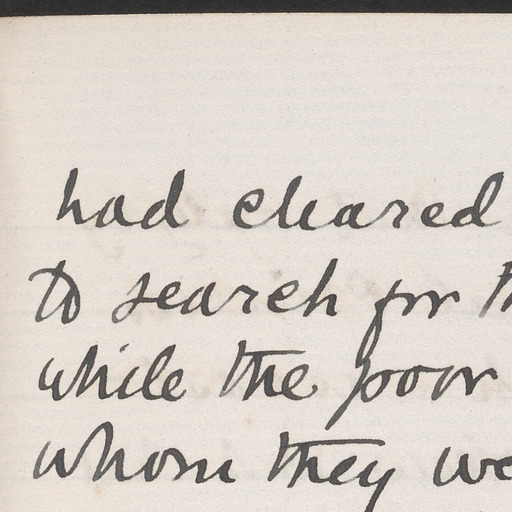 had cleared
to search for
while the poor
whom they